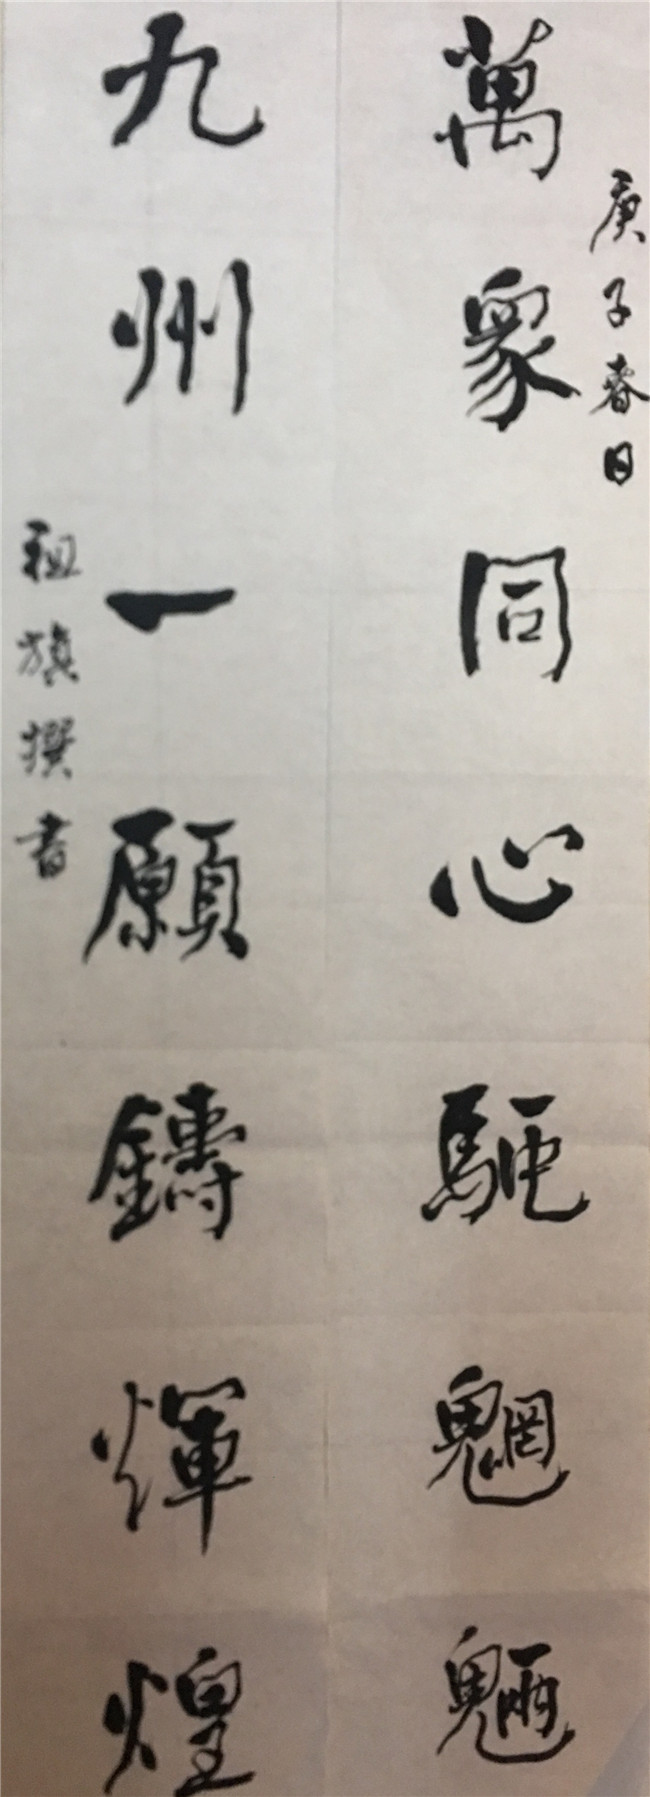 庚子春日
萬眾同心驅魍魎
九州一願鑄輝煌
祖旗撰書